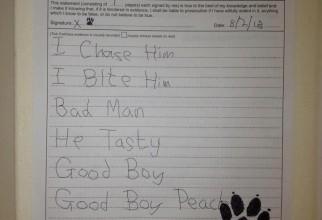 This statement (consisting of 1 pages) each signed by me) is true to the best of my knowledge and belief and
I make it knowing that, if it is tendered in evidence, I shall be liable to prosecution if I have wilfully stated in it, anything
which I know to be false, or do not believe to be true.
Signature: X Date: 8/2/18
I Chase Him
I Bite Him
Bad Man
He Tasty
Good Boy
Good Boy Peach